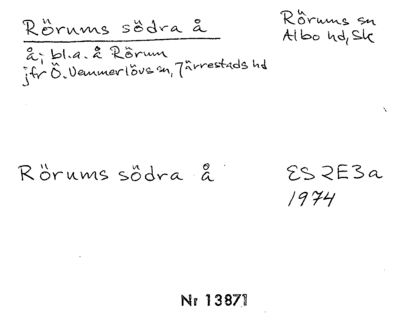 Rörums södra å
Rörums sn
Albo hd, Sk
å; bl.a. å Rörum
jfr Ö. Vemmerlövs sn, Järrestads hd
Rörums södra å
ES 2E3a
1974
Nr 13871